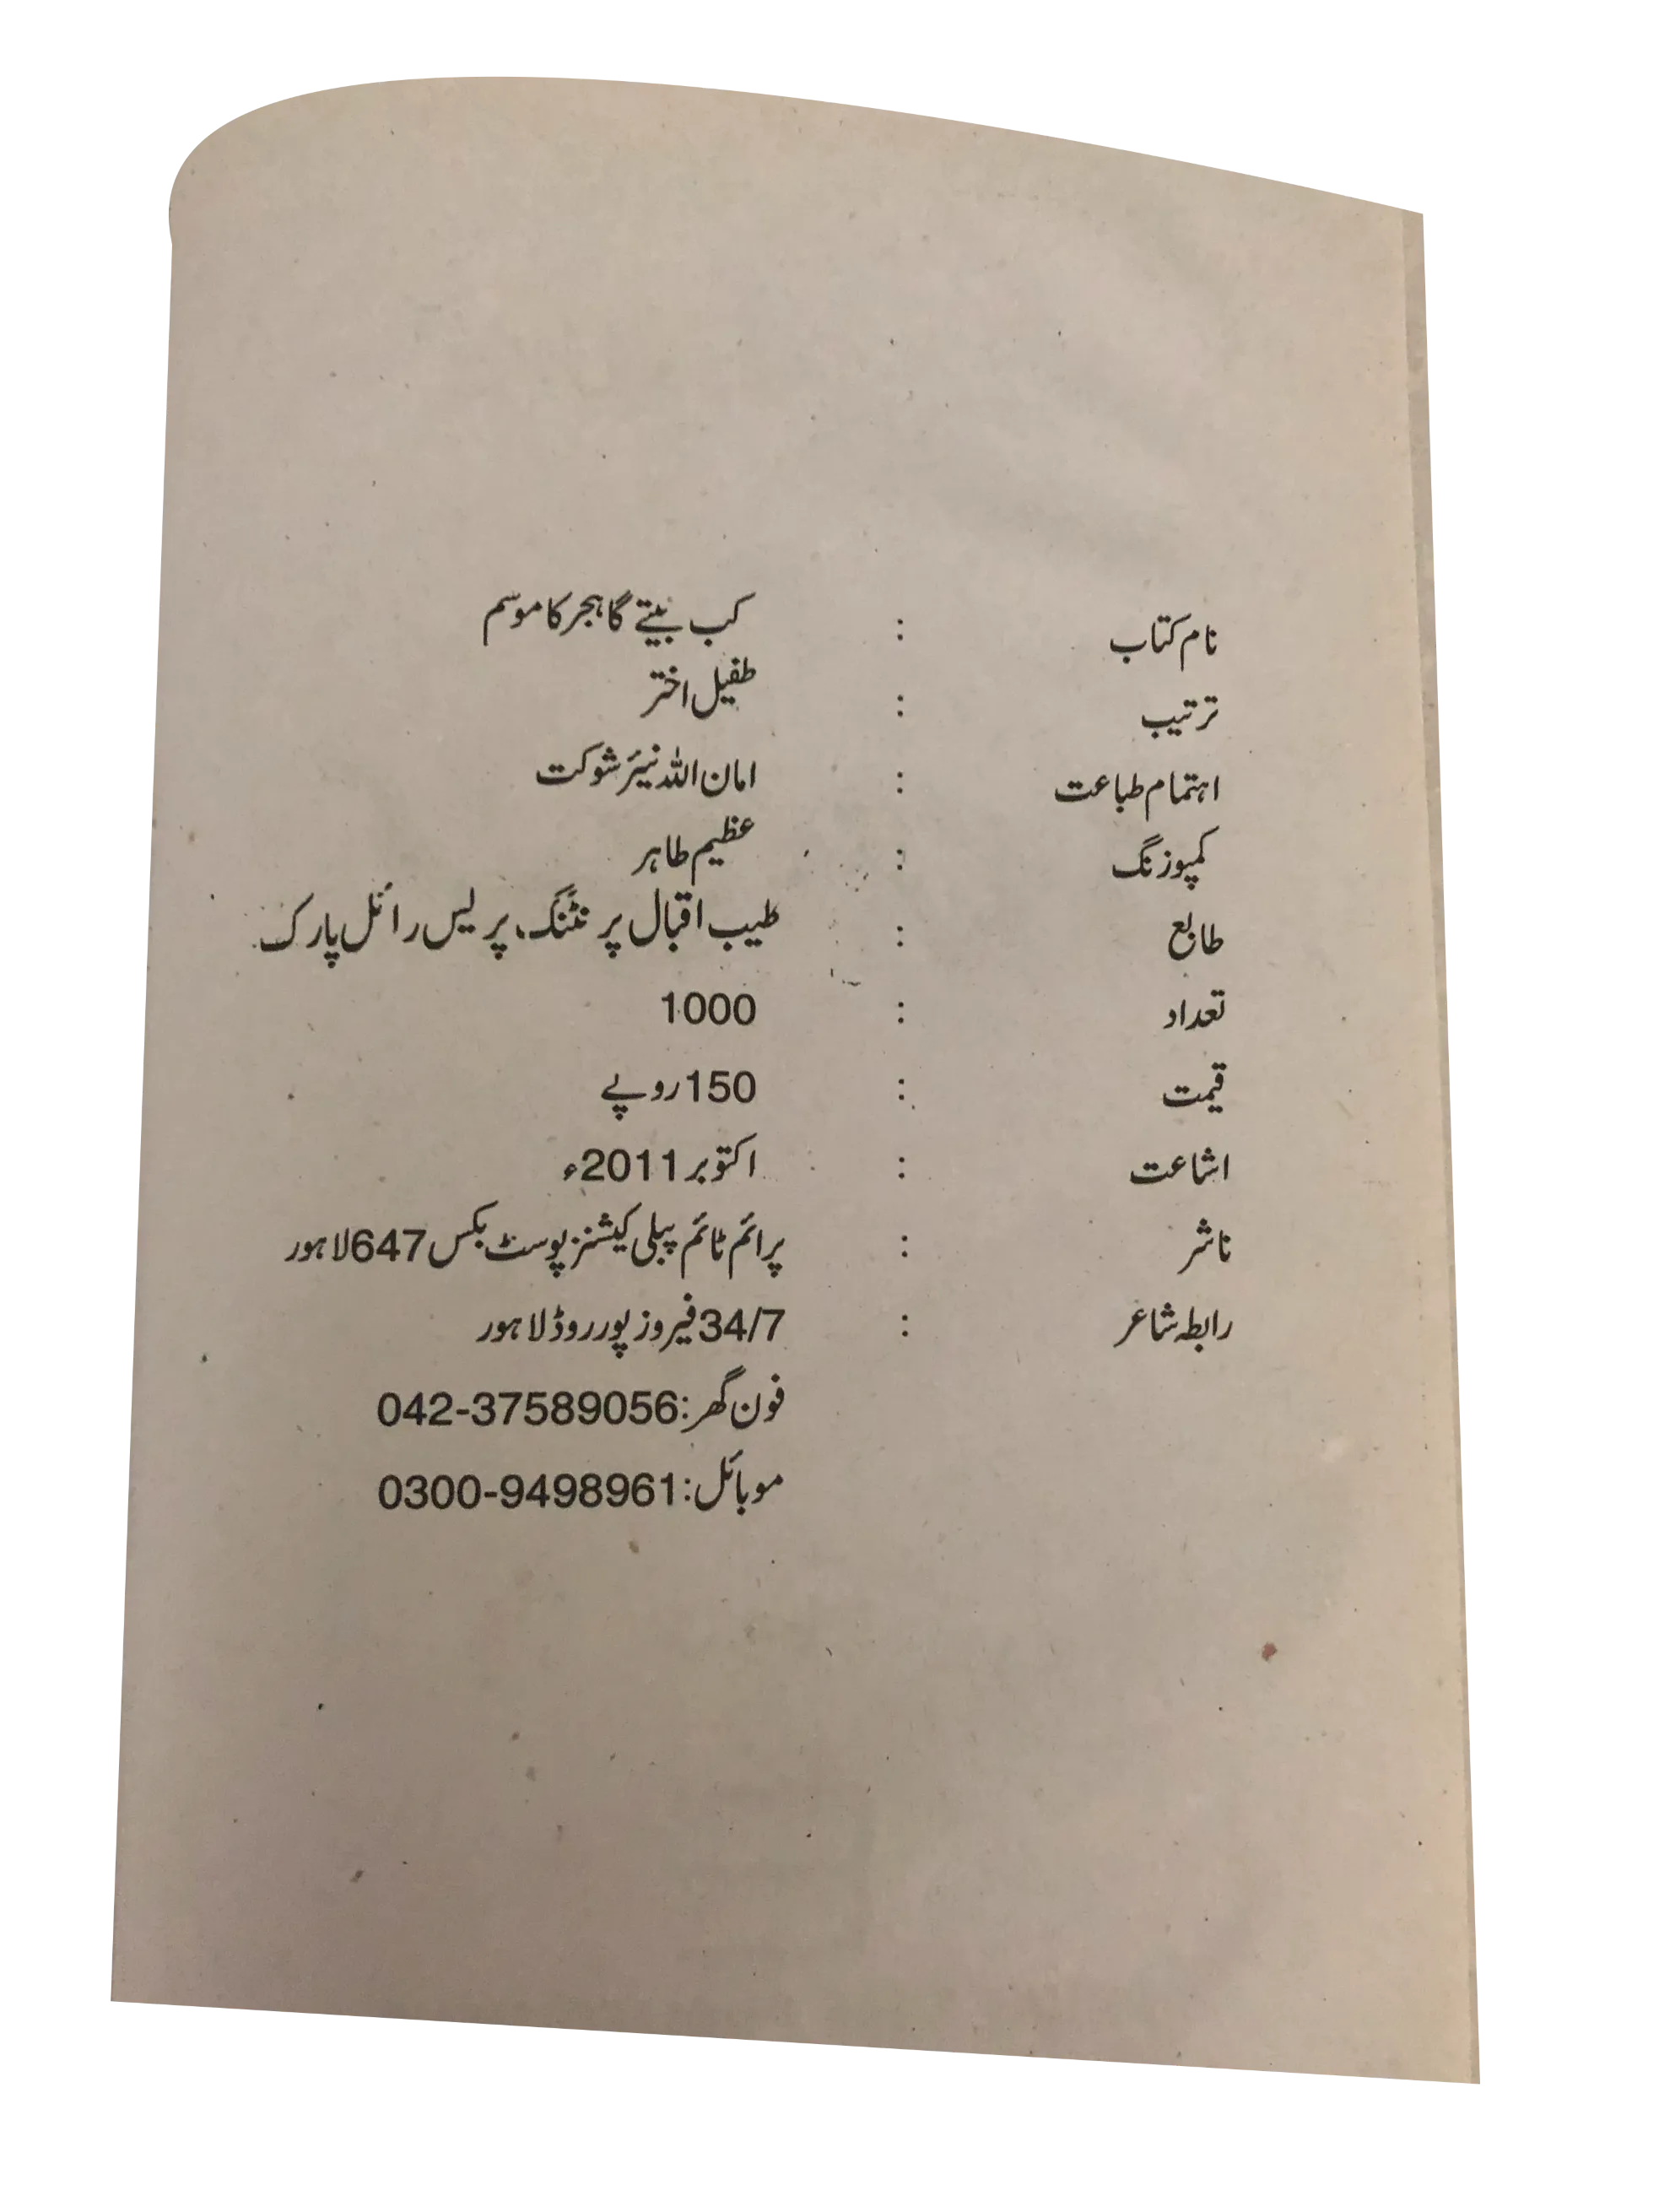 نام کتاب : کب بیتے گا ہجر کا موسم
ترتیب : طفیل اختر
اہتمام طباعت : امان اللہ نیئر شوکت
کمپوزنگ : عظیم طاہر
طابع : طیب اقبال پرنٹنگ، پریس رائل پارک
تعداد : 1000
قیمت : 150 روپے
اشاعت : اکتوبر 2011ء
ناشر : پرائم ٹائم پبلی کیشنز پوسٹ بکس 647 لاہور
رابطہ شاعر : 34/7 فیروز پور روڈ لاہور
فون گھر: 042-37589056
موبائل: 0300-9498961